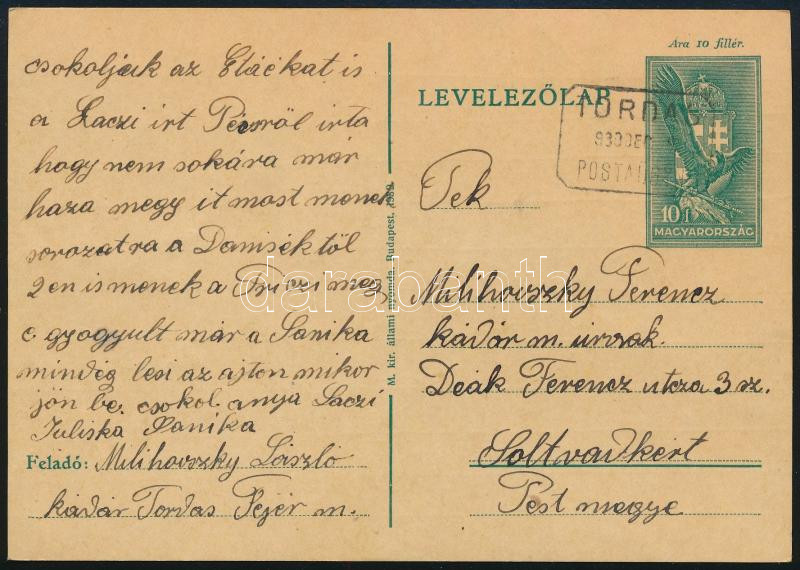 csokoljuk az Etáékat is
a Laczi irt Pécsről irta
hogy nem sokára már
haza megy it most menek
sorozatra a Daniséktöl
2en is menek a Friczi meg
e. gyogyult már a Sanika
mindeg lesi az ajton mikor
jön be. csokol anya Laczi
Juliska Sanika
Feladó: Milihovszky László
kádár Tordas Fejér m.
M. kir. állami nyomda, Budapest, 1932.
Ára 10 fillér.
LEVELEZŐLAP
TORDAS
933 DEC
POSTAÜ
10 f
MAGYARORSZÁG
Tek
Milihovszky Ferencz
kádár m. urnak.
Deák Ferencz utcza 3 sz.
Soltvadkert
Pest megye
darabanth